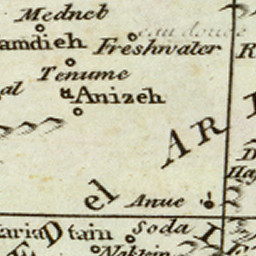 Medneb
eau douce
amdieh Freshwater R
Tenume
al
Anizeh
el AR
D
Anue
aria D tain Soda
Naklein